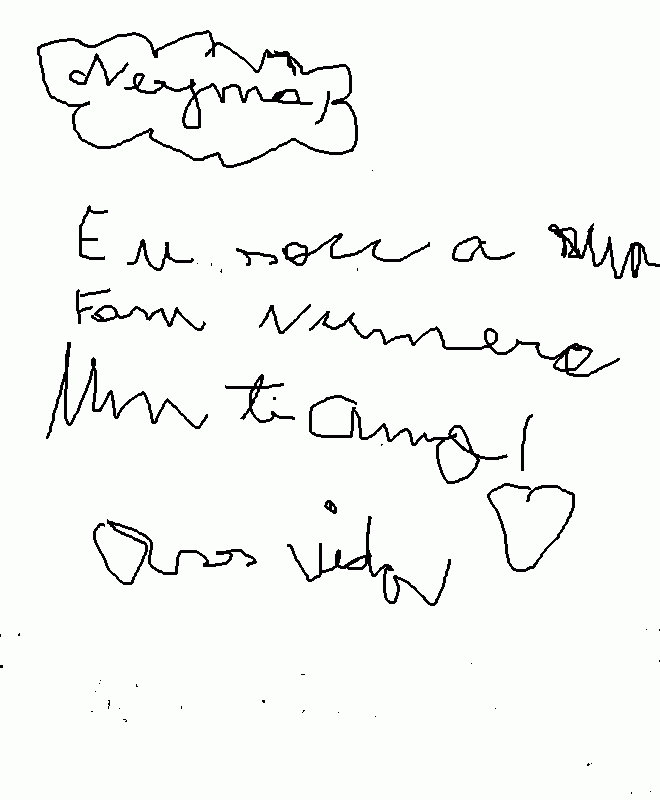 Neymar,
Eu sou a sua
Fam numero
Um ti amo!